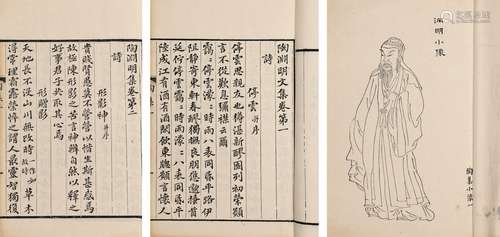 淵明小像
陶集小像一
陶淵明文集卷第一
詩
停雲 并序
停雲思親友也罇湛新醪園列初榮願
言不從歎息彌襟云爾
靄〻停雲濛〻時雨八表同昏平路伊
阻靜寄東軒春醪獨撫良朋悠邈搔首
延佇停雲靄〻時雨濛〻八表同昏平
陸成江有酒有酒閒飲東牕願言懷人
陶淵明集卷第二
詩
形影神 并序
貴賤賢愚莫不營營以惜生斯甚惑焉
故極陳形影之苦言神辨自然以釋之
好事君子共取其心焉
形贈影
天地長不沒山川無改時 草木
得常理霜露榮悴之謂人最靈智獨復